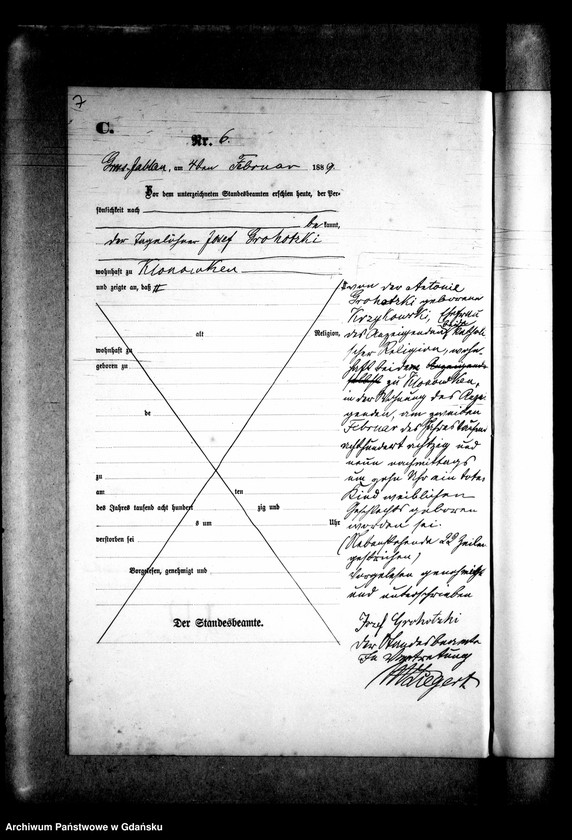 7
C.
Nr. 6.
Gros Jablau, am 4ten Februar 1889.
Vor dem unterzeichneten Standesbeamten erschien heute, der Per-
sönlichkeit nach
be kannt,
der Tagelöhner Josef Grohotzki
wohnhaft zu Klonowken
und zeigte an, daß #
alt Religion,
wohnhaft zu
geboren zu
be
zu
am ten
des Jahres tausend acht hundert zig und
s um Uhr
verstorben sei
Vorgelesen, genehmigt und
Der Standesbeamte.
# von der Antonie
Grohotzki geborenen
Krzykowski, Ehefrau
des Anzeigenden, katholi-
scher Religion, wohn-
haft bei dem Anzeigenden
selbst zu Klonowken,
in der Wohnung des Anzei-
genden, am zweiten
Februar des Jahres tausend
achthundert achtzig und
neun nachmittags
um zehn Uhr ein totes
Kind weiblichen
Geschlechts geboren
worden sei.
(Nebenstehende 22 Zeilen
gestrichen)
Vorgelesen genehmigt
und unterschrieben
Jozef Grohotzki
Der Standesbeamte
In Vertretung
Wiegert
Archiwum Państwowe w Gdańsku